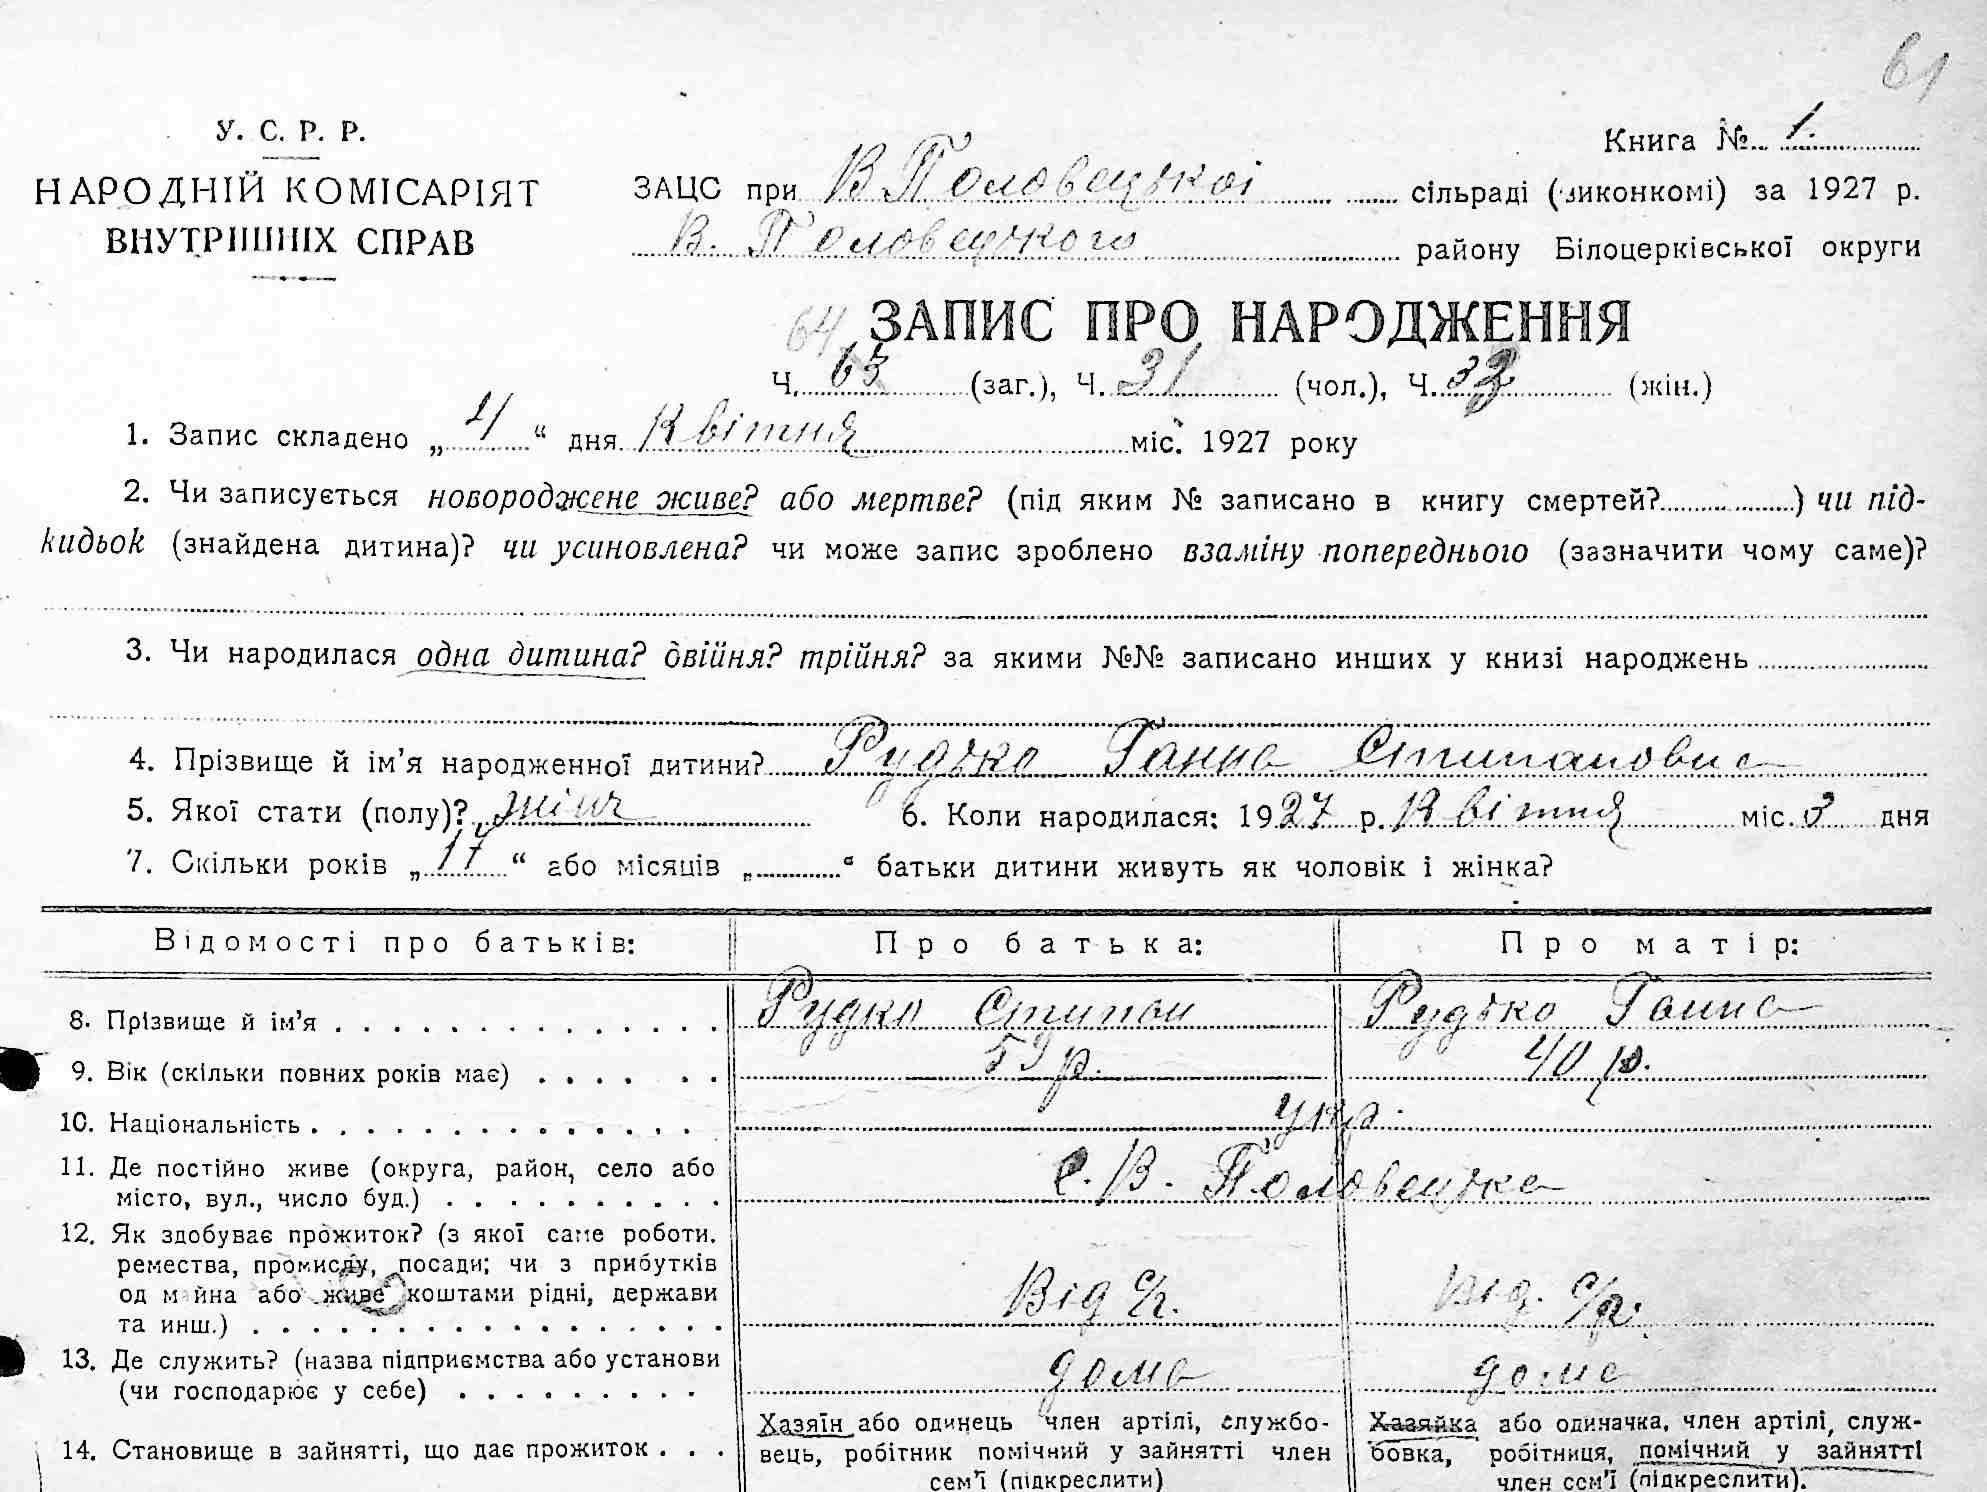 61
У. С. Р. Р.
НАРОДНІЙ КОМІСАРІЯТ
ВНУТРІШНІХ СПРАВ
Книга № 1.
ЗАЦС при В Половецької сільраді (виконкомі) за 1927 р.
В. Половецького району Білоцерківської округи
64 ЗАПИС ПРО НАРОДЖЕННЯ
Ч. 63 (заг.), Ч. 31 (чол.), Ч. 33 (жін.)
1. Запис складено „ 4 “ дня Квітня міс. 1927 року
2. Чи записується новороджене живе? або мертве? (під яким № записано в книгу смертей?..........) чи під-
кидьок (знайдена дитина)? чи усиновлена? чи може запис зроблено взаміну попереднього (зазначити чому саме)?
3. Чи народилася одна дитина? двійня? трійня? за якими №№ записано инших у книзі народжень
4. Прізвище й ім’я народженної дитини? Рудько Ганна Стипановна
5. Якої стати (полу)? жіноч 6. Коли народилася: 1927 р. Квітня міс. 3 дня
7. Скільки років „ 17 “ або місяців „..........“ батьки дитини живуть як чоловік і жінка?
Відомості про батьків: Про батька: Про матір:
8. Прізвище й ім’я . . . Рудко Стипан Рудько Ганна
9. Вік (скільки повних років має) . . . 59 р. 40 р.
10. Національність . . . укр.
11. Де постійно живе (округа, район, село або
місто, вул., число буд.) . . . с. В. Половецьке
12. Як здобуває прожиток? (з якої саме роботи.
ремества, промислу, посади; чи з прибутків
од майна або живе коштами рідні, держави
та инш.) . . . Від с/г. Від. с/г.
13. Де служить? (назва підприємства або установи
(чи господарює у себе) . . . дома дома
14. Становище в зайнятті, що дає прожиток . . .
Хазяїн або одинець член артілі, службо-
вець, робітник помічний у зайнятті член
сем’ї (підкреслити)
Хазяйка або одиначка, член артілі, служ-
бовка, робітниця, помічний у зайнятті
член сем’ї (підкреслити).